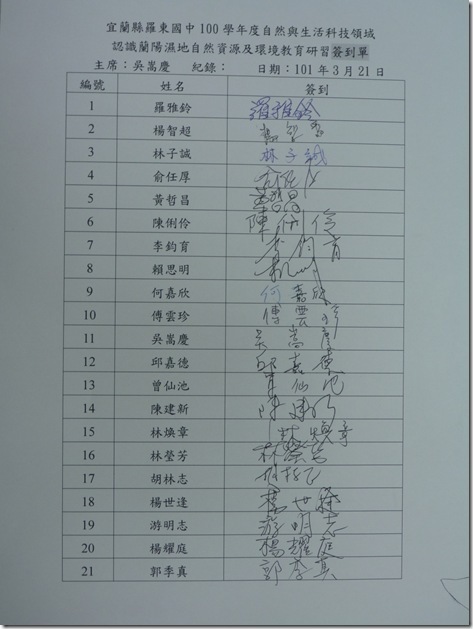 宜蘭縣羅東國中 100 學年度自然與生活科技領域
認識蘭陽濕地自然資源及環境教育研習簽到單
主席：吳嵩慶 紀錄： 日期：101 年 3 月 21 日
編號 姓名 簽到
1 羅雅鈴 羅雅鈴
2 楊智超
3 林子誠 林子誠
4 俞任厚
5 黃哲昌 黃哲昌
6 陳俐伶 陳俐伶
7 李鈞育 李鈞育
8 賴思明
9 何嘉欣 何嘉欣
10 傅雲珍 傅雲珍
11 吳嵩慶 吳嵩慶
12 邱嘉德 邱嘉德
13 曾仙池
14 陳建新
15 林煥章 林煥章
16 林瑩芳 林瑩芳
17 胡林志
18 楊世逢 楊世逢
19 游明志 游明志
20 楊耀庭 楊耀庭
21 郭季真 郭季真